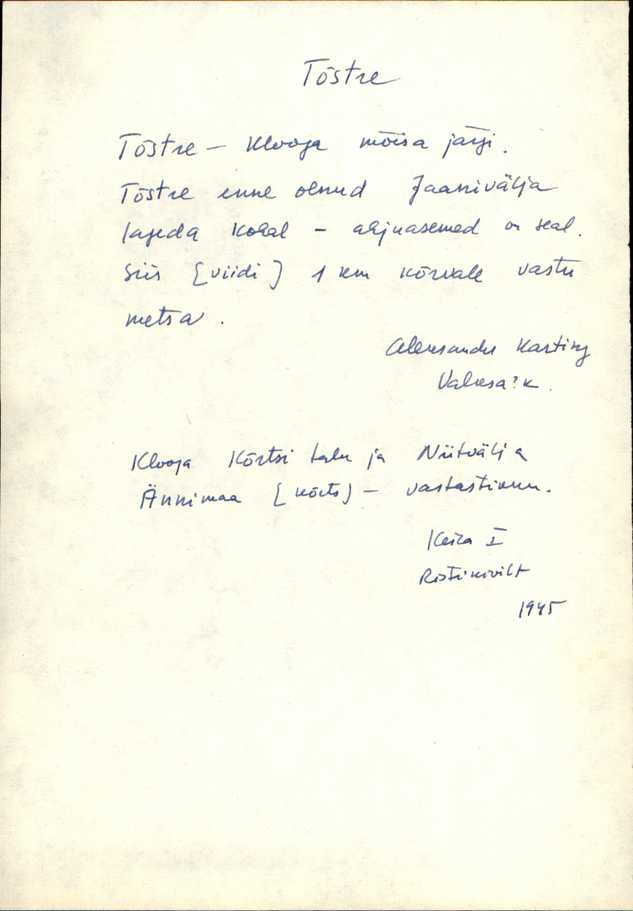 Tõstre
Tõstre – Klooga mõisa järgi.
Tõstre enne olnud Jaanivälja
lageda kohal – ahjuasemed on seal.
Siis [viidi] 1 km kõrvale vastu
metsa.
Aleksander Karting
Valkesa? k.
Klooga Kõrtsi talu ja Niitvälja
Ännimaa [kõrts] – vastastikku.
Keila I
Ristikivilt
1945